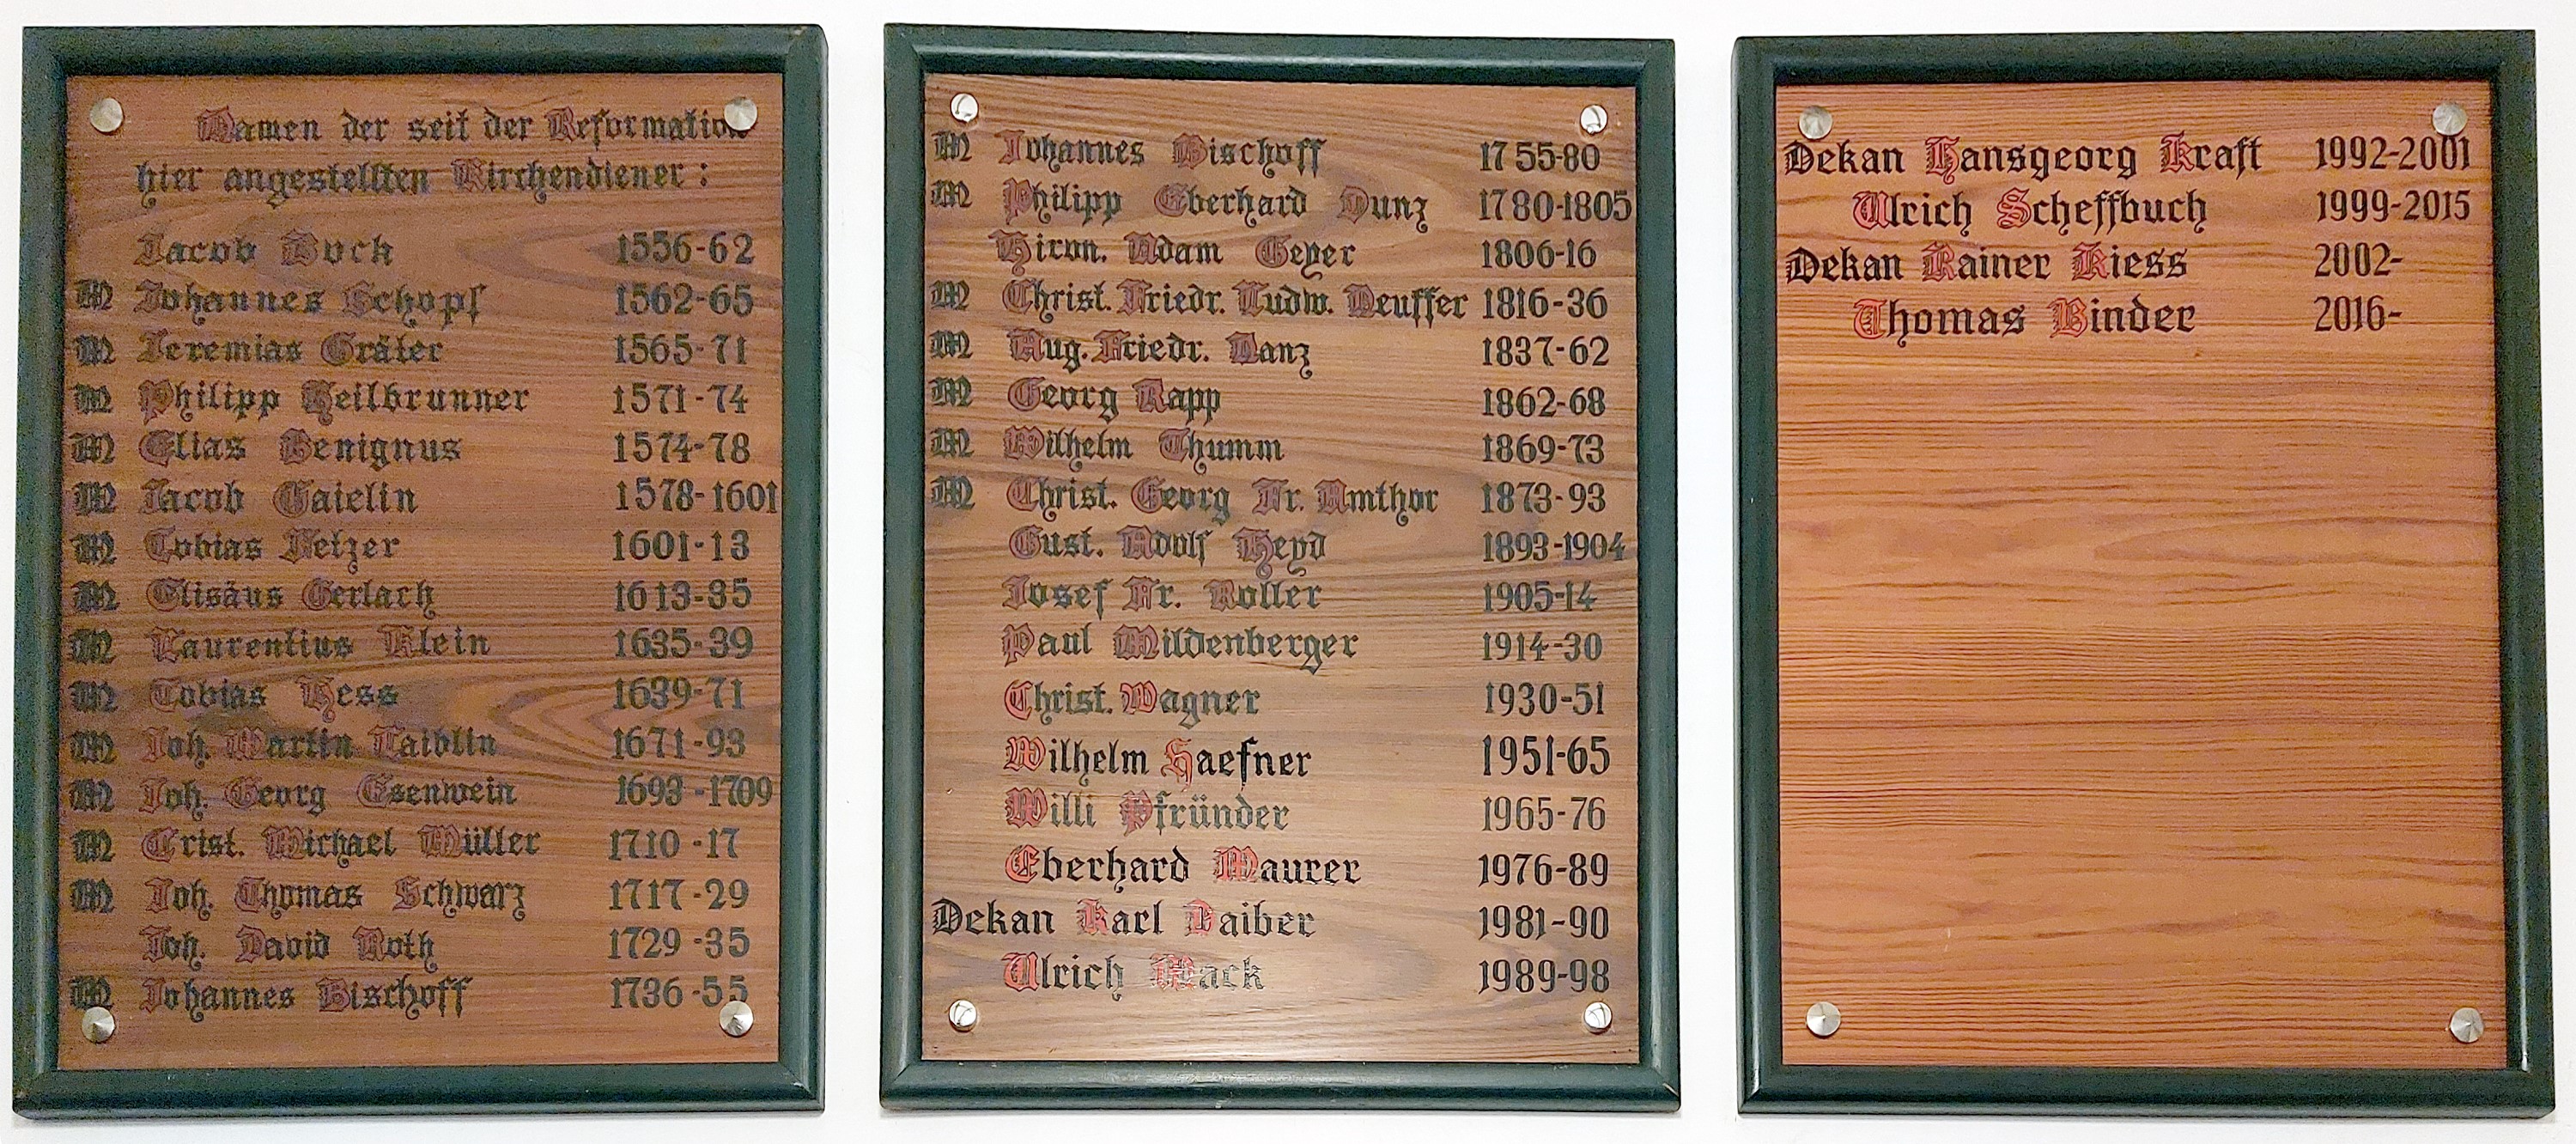 Namen der seit der Reformation
hier angestellten Kirchendiener :
Jacob Bock 1556-62
M Johannes Schopf 1562-65
M Jeremias Gräter 1565-71
M Philipp Heilbrunner 1571-74
M Elias Benignus 1574-78
M Jacob Gaielin 1578-1601
M Tobias 1601-13
M Elisäus Gerlach 1613-35
M Laurentius Klein 1635-39
M Tobias Hess 1639-71
M Joh. Martin Laiblin 1671-93
M Joh. Georg Esenwein 1693-1709
M Crist. Michael Müller 1710-17
M Joh. Thomas Schwarz 1717-29
Joh. David Roth 1729-35
M Johannes Bischoff 1736-55
M Johannes Bischoff 1755-80
M Philipp Eberhard Dunz 1780-1805
Hiron. Adam Geyer 1806-16
M Christ. Friedr. Ludw. Neuffer 1816-36
M Aug. Friedr. Nanz 1837-62
M Georg Rapp 1862-68
M Wilhelm Thumm 1869-73
M Christ. Georg Fr. Amthor 1873-93
Gust. Adolf Heyd 1893-1904
Josef Fr. Roller 1905-14
Paul Mildenberger 1914-30
Christ. Wagner 1930-51
Wilhelm Haefner 1951-65
Willi Pfründer 1965-76
Eberhard Maurer 1976-89
Dekan Karl Daiber 1981-90
Ulrich Mack 1989-98
Dekan Hansgeorg Kraft 1992-2001
Ulrich Scheffbuch 1999-2015
Dekan Rainer Kiess 2002-
Thomas Binder 2016-